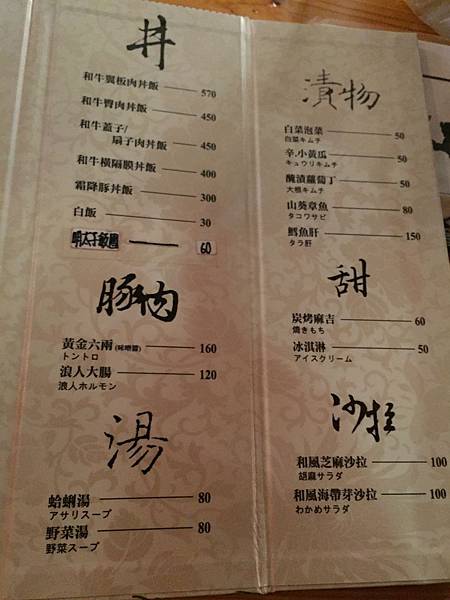 丼
和牛翼板肉丼飯 570
和牛臀肉丼飯 450
和牛蓋子/
扇子肉丼飯 450
和牛橫隔膜丼飯 400
霜降豚丼飯 300
白飯 30
明太子飯糰 60
豚肉
黃金六兩(味噌醬) 160
トントロ
浪人大腸 120
浪人ホルモン
湯
蛤蜊湯 80
アサリスープ
野菜湯 80
野菜スープ
漬物
白菜泡菜 50
白菜キムチ
辛.小黃瓜 50
キュウリキムチ
醃漬蘿蔔丁 50
大根キムチ
山葵章魚 80
タコワサビ
鱈魚肝 150
タラ肝
甜
炭烤麻吉 60
焼きもち
冰淇淋 50
アイスクリーム
沙拉
和風芝麻沙拉 100
胡麻サラダ
和風海帶芽沙拉 100
わかめサラダ